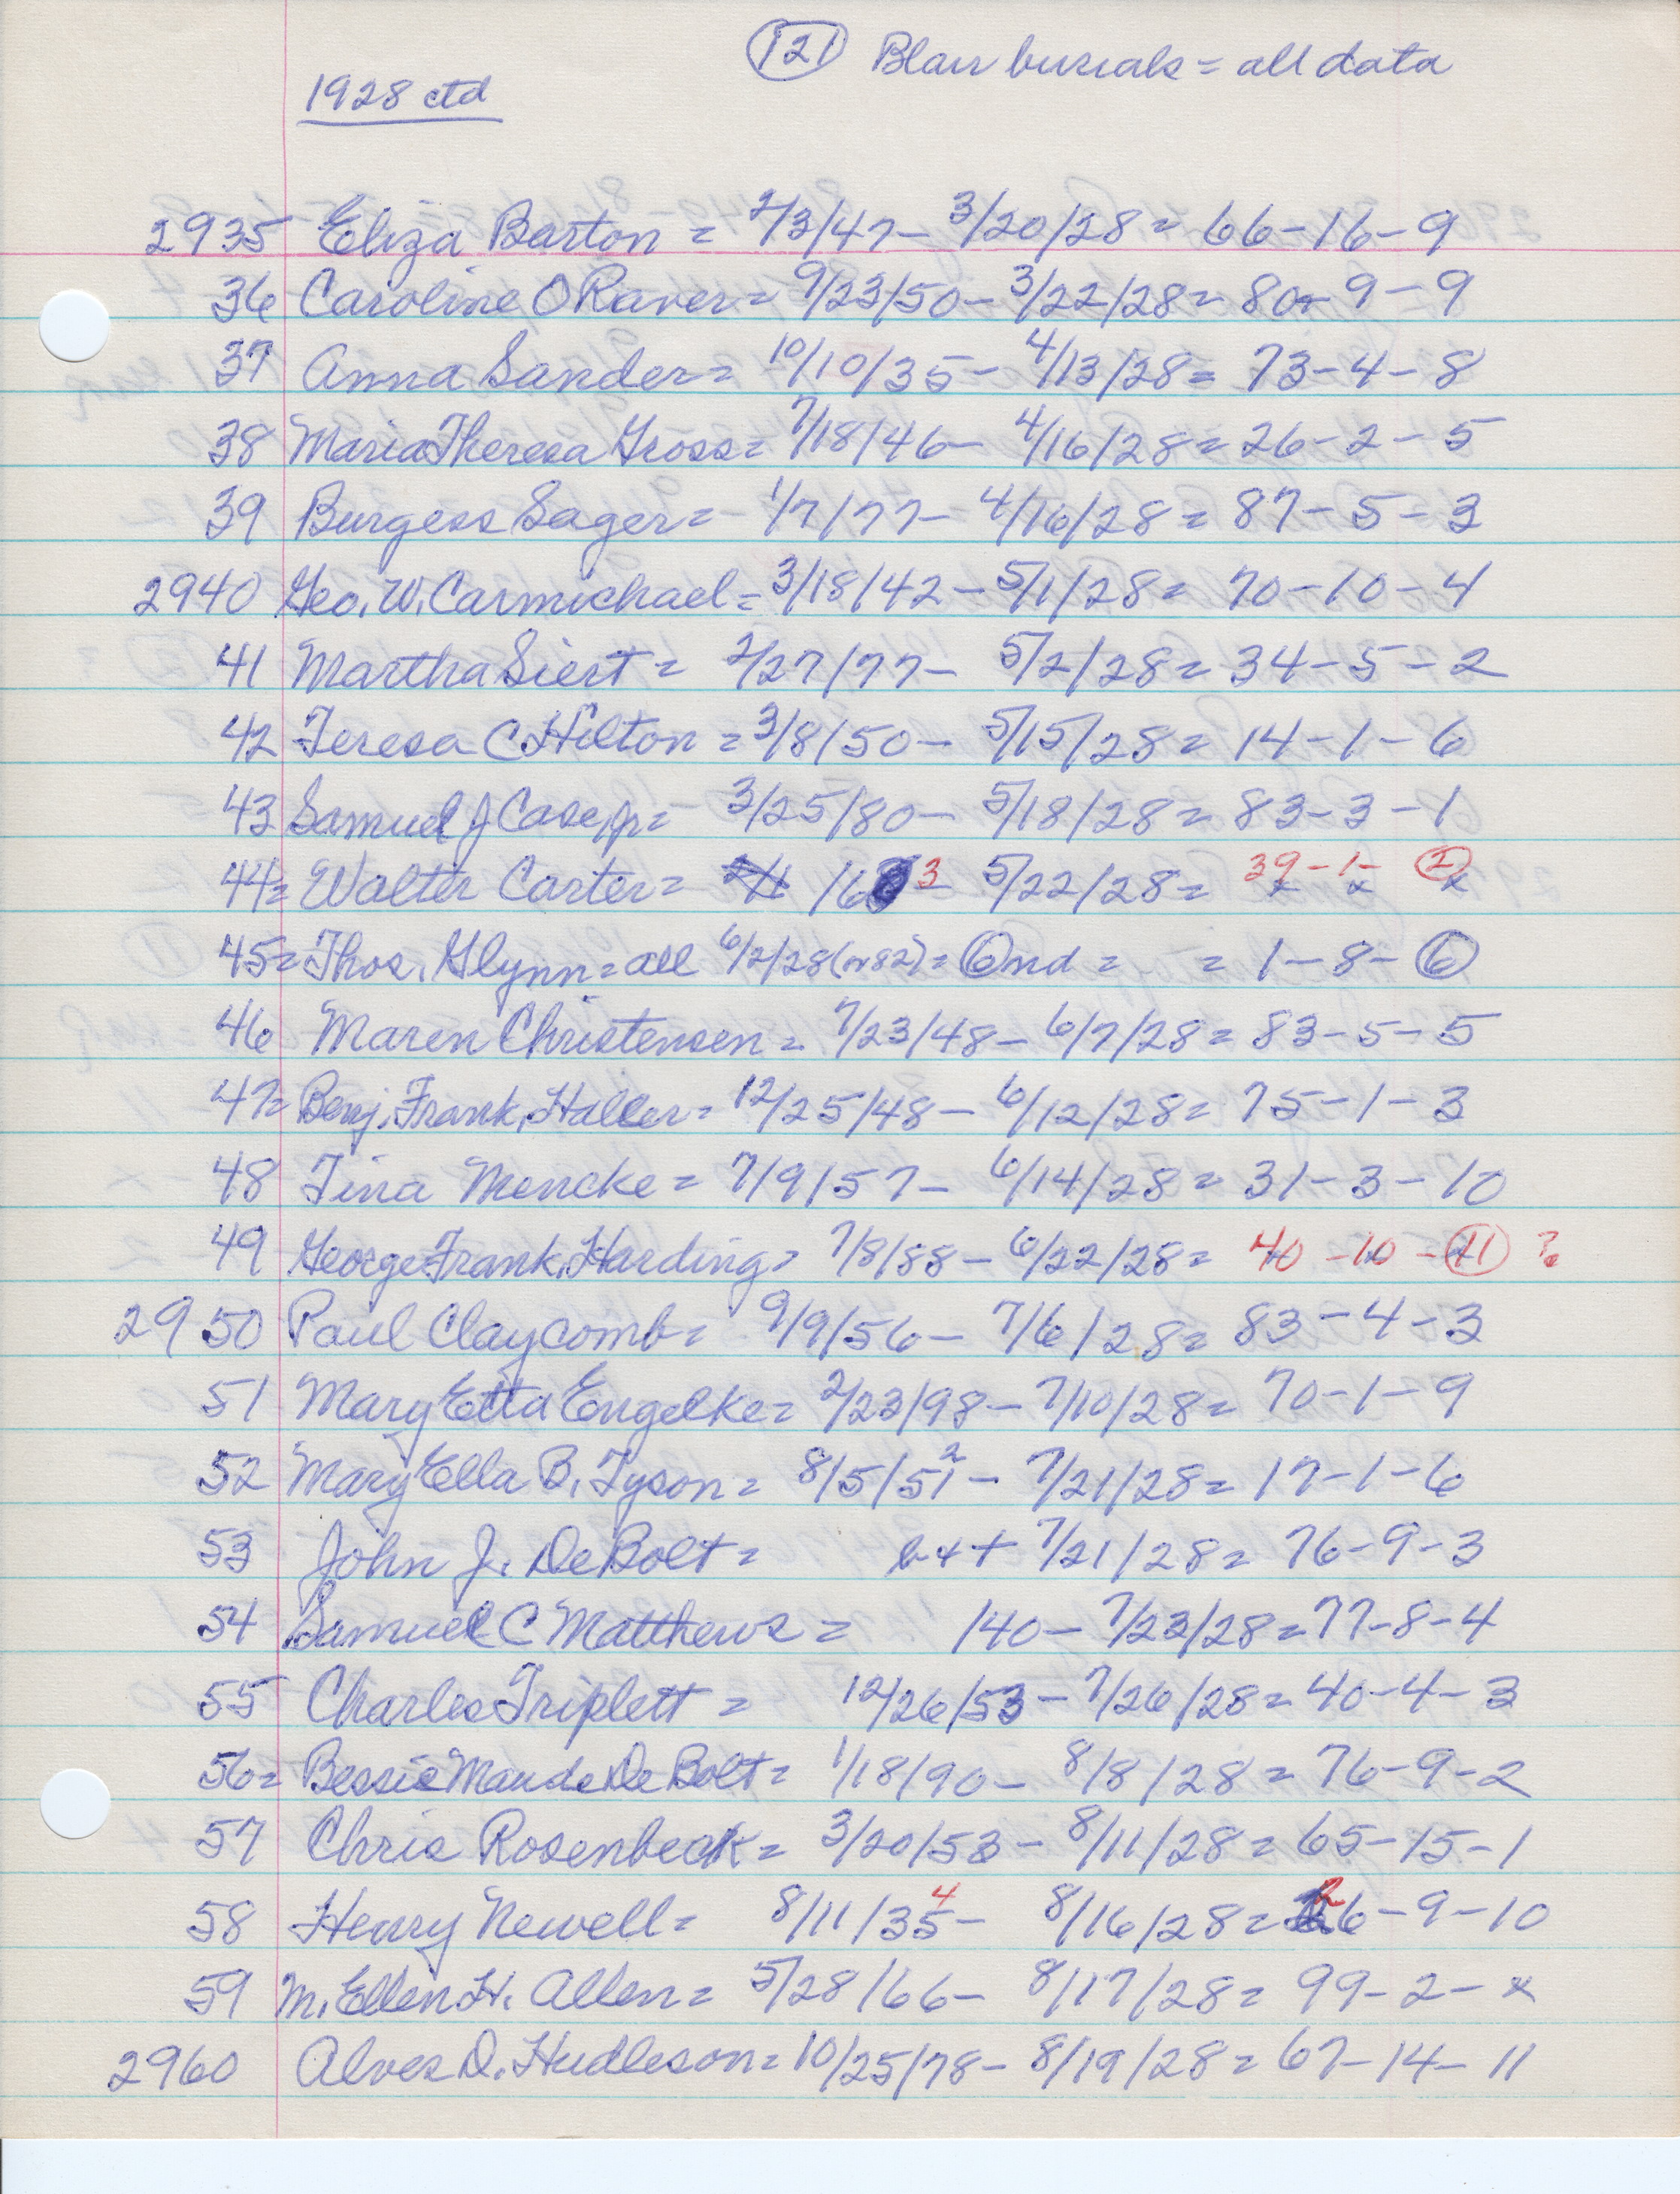 (121) Blair burials = all data
1928 ctd
2935 Eliza Barton = 2/3/47 - 3/20/28 = 66-16-9
36 Caroline O Raver = 9/23/50 - 3/22/28 = 80-9-9
37 Anna Sander = 10/10/35 - 4/13/28 = 73-4-8
38 Maria Theresa Gross = 7/18/46 - 4/16/28 = 26-2-5
39 Burgess Sager = 1/7/77 - 4/16/28 = 87-5-3
2940 Geo. W. Carmichael = 3/18/42 - 5/1/28 = 70-10-4
41 Martha Siert = 2/27/77 - 5/2/28 = 34-5-2
42 Teresa C. Hilton = 3/8/50 - 5/15/28 = 14-1-6
43 Samuel J Case, Jr = 3/25/80 - 5/18/28 = 83-3-1
44 = Walter Carter = /63 - 5/22/28 = 39-1-(2) x x x
45 = Thos. Glynn = all 6/2/28 (or 82) = (6) nd = = 1-8-(6)
46 Maren Christensen = 7/23/48 - 6/7/28 = 83-5-5
47 = Benj. Frank. Haller = 12/25/48 - 6/12/28 = 75-1-3
48 Tina Mencke = 7/9/57 - 6/14/28 = 31-3-10
49 George Frank. Harding = 7/8/88 - 6/22/28 = 40-10-(11) ?
2950 Paul Claycomb = 9/9/56 - 7/6/28 = 83-4-3
51 Mary Etta Engelke = 2/23/98 - 7/10/28 = 70-1-9
52 Mary Ella B. Tyson = 8/5/51 2 - 7/21/28 = 17-1-6
53 John J. DeBolt = b + t 7/21/28 = 76-9-3
54 Samuel C Matthews = /40 - 7/23/28 = 77-8-4
55 Charles Triplett = 12/26/53 - 7/26/28 = 40-4-3
56 = Bessie Maude De Bolt = 1/18/90 - 8/8/28 = 76-9-2
57 Chris Rosenbeck = 3/20/53 - 8/11/28 = 65-15-1
58 Henry Newell = 8/11/35 4 - 8/16/28 = 26-9-10
59 M. Ellen H. Allen = 5/28/66 - 8/17/28 = 99-2-x
2960 Alves D. Hudleson = 10/25/78 - 8/19/28 = 67-14-11